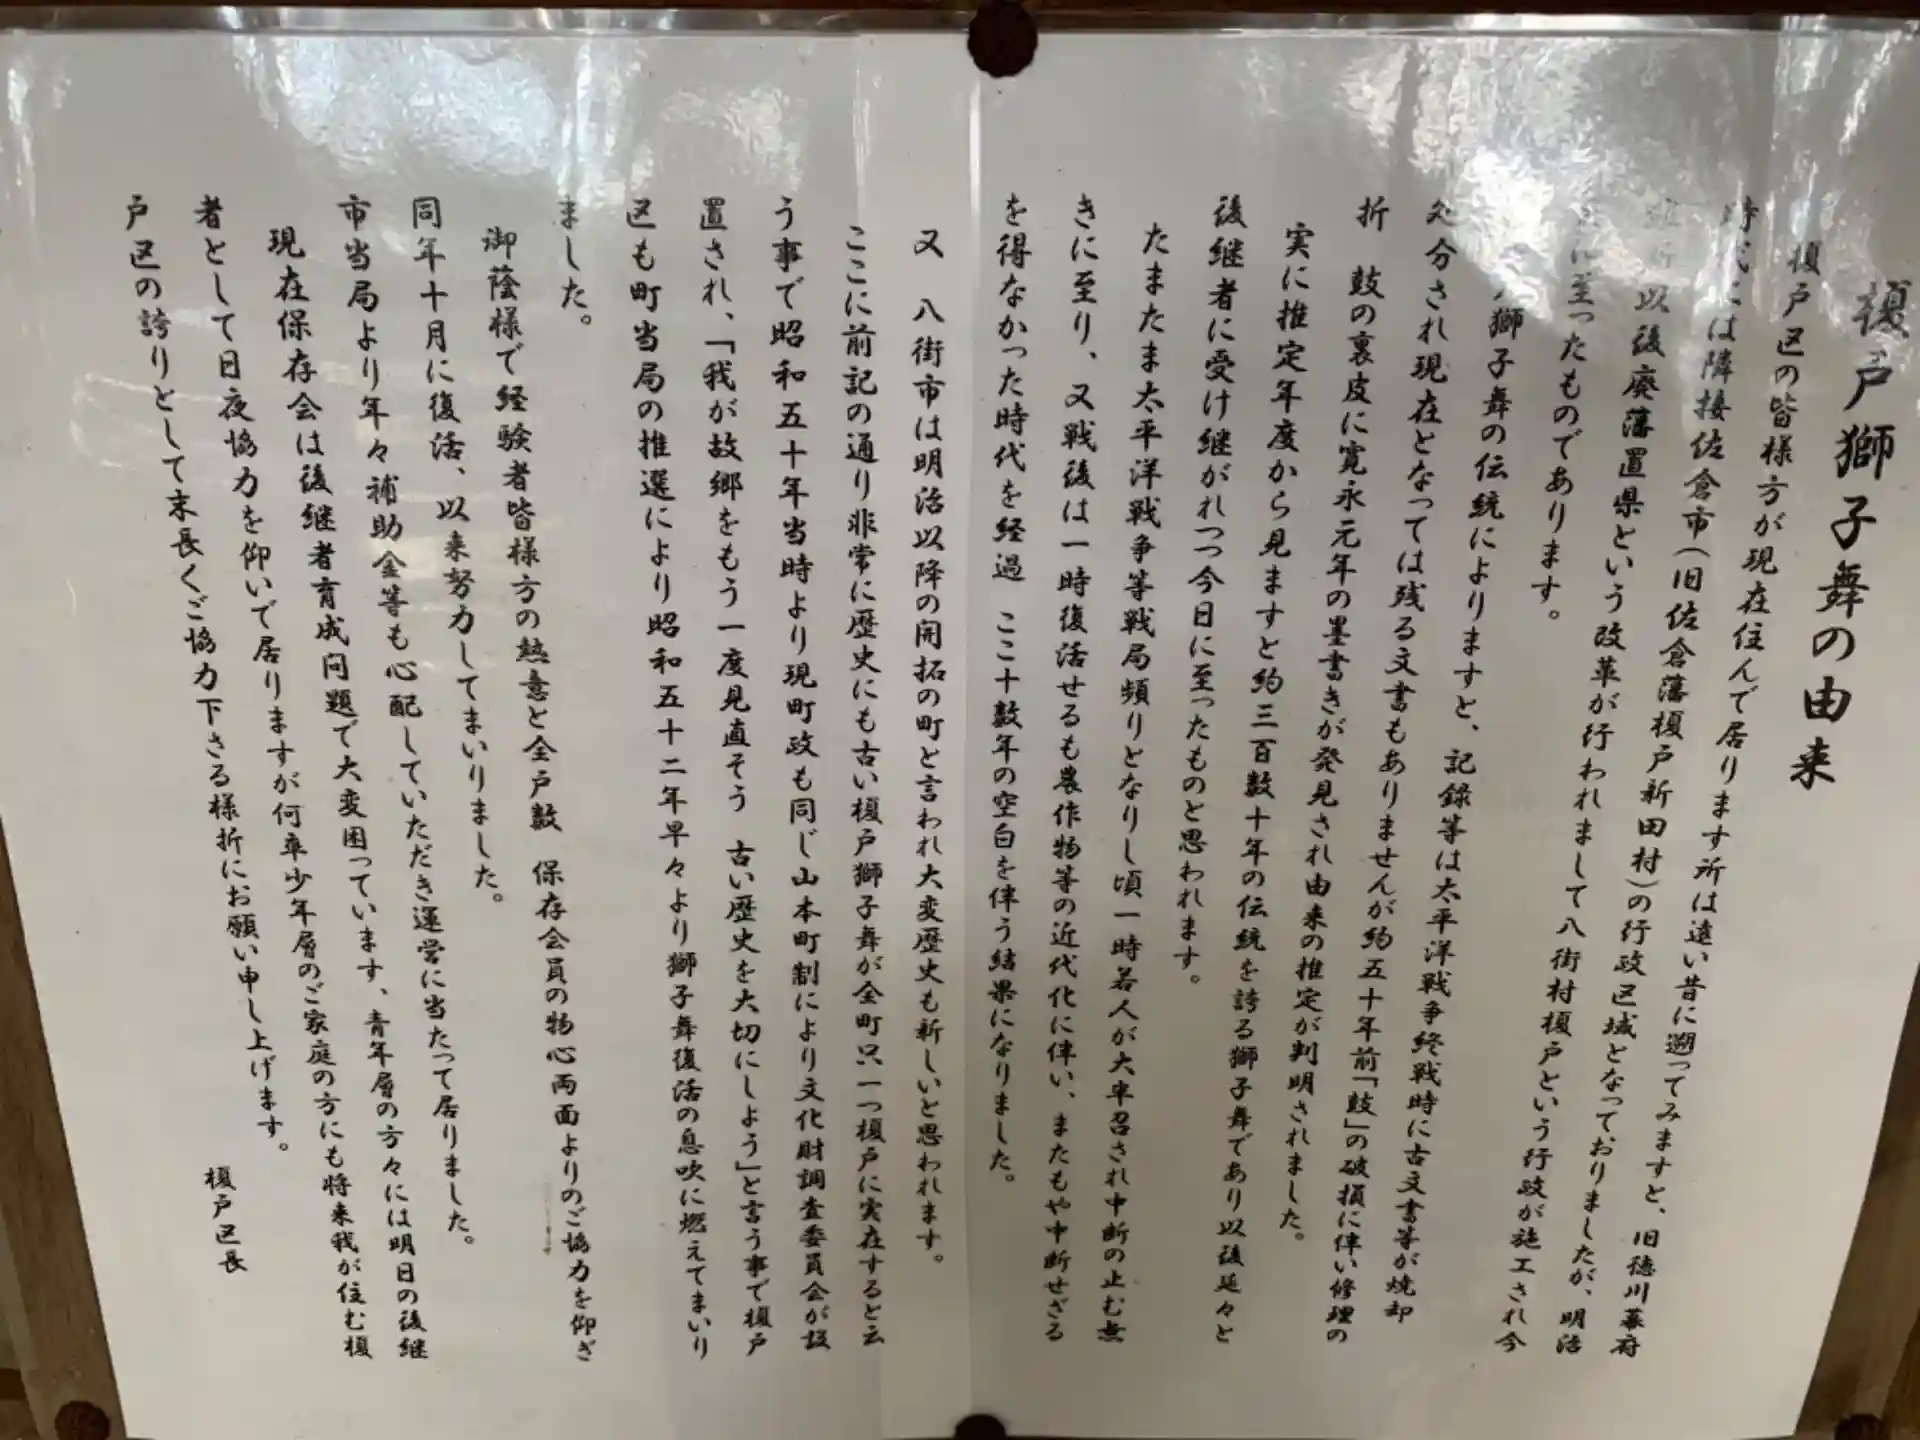 榎戸獅子舞の由来
榎戸区の皆様方が現在住んで居ります所は遠い昔に遡ってみますと、旧徳川幕府
時代には隣接佐倉市(旧佐倉藩榎戸新田村)の行政区域となっておりましたが、明治
維新以後廃藩置県という改革が行われまして八街村榎戸という行政が施工され今
に至ったものであります。
獅子舞の伝統によりますと、記録等は太平洋戦争終戦時に古文書等が焼却
処分され現在となっては残る文書もありませんが約五十年前「鼓」の破損に伴い修理の
折 鼓の裏皮に寛永元年の墨書きが発見され由来の推定が判明されました。
実に推定年度から見ますと約三百数十年の伝統を誇る獅子舞であり以後延々と
後継者に受け継がれつつ今日に至ったものと思われます。
たまたま太平洋戦争等戦局頻りとなりし頃一時若人が大半召され中断の止む無
きに至り、又戦後は一時復活せるも農作物等の近代化に伴い、またもや中断せざる
を得なかった時代を経過 ここ十数年の空白を伴う結果になりました。
又 八街市は明治以降の開拓の町と言われ大変歴史も新しいと思われます。
ここに前記の通り非常に歴史にも古い榎戸獅子舞が全町只一つ榎戸に実在すると云
う事で昭和五十年当時より現町政も同じ山本町制により文化財調査委員会が設
置され、「我が故郷をもう一度見直そう 古い歴史を大切にしよう」と言う事で榎戸
区も町当局の推選により昭和五十二年早々より獅子舞復活の息吹に燃えてまいり
ました。
御蔭様で経験者皆様方の熱意と全戸数 保存会員の物心両面よりのご協力を仰ぎ
同年十月に復活、以来努力してまいりました。
市当局より年々補助金等も心配していただき運営に当たって居りました。
現在保存会は後継者育成問題で大変困っています、青年層の方々には明日の後継
者として日夜協力を仰いで居りますが何卒少年層のご家庭の方にも将来我が住む榎
戸区の誇りとして末長くご協力下さる様折にお願い申し上げます。
榎戸区長